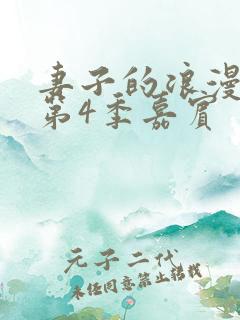 妻子的浪漫
第4季嘉宾
元子二代
未经同意禁止转载